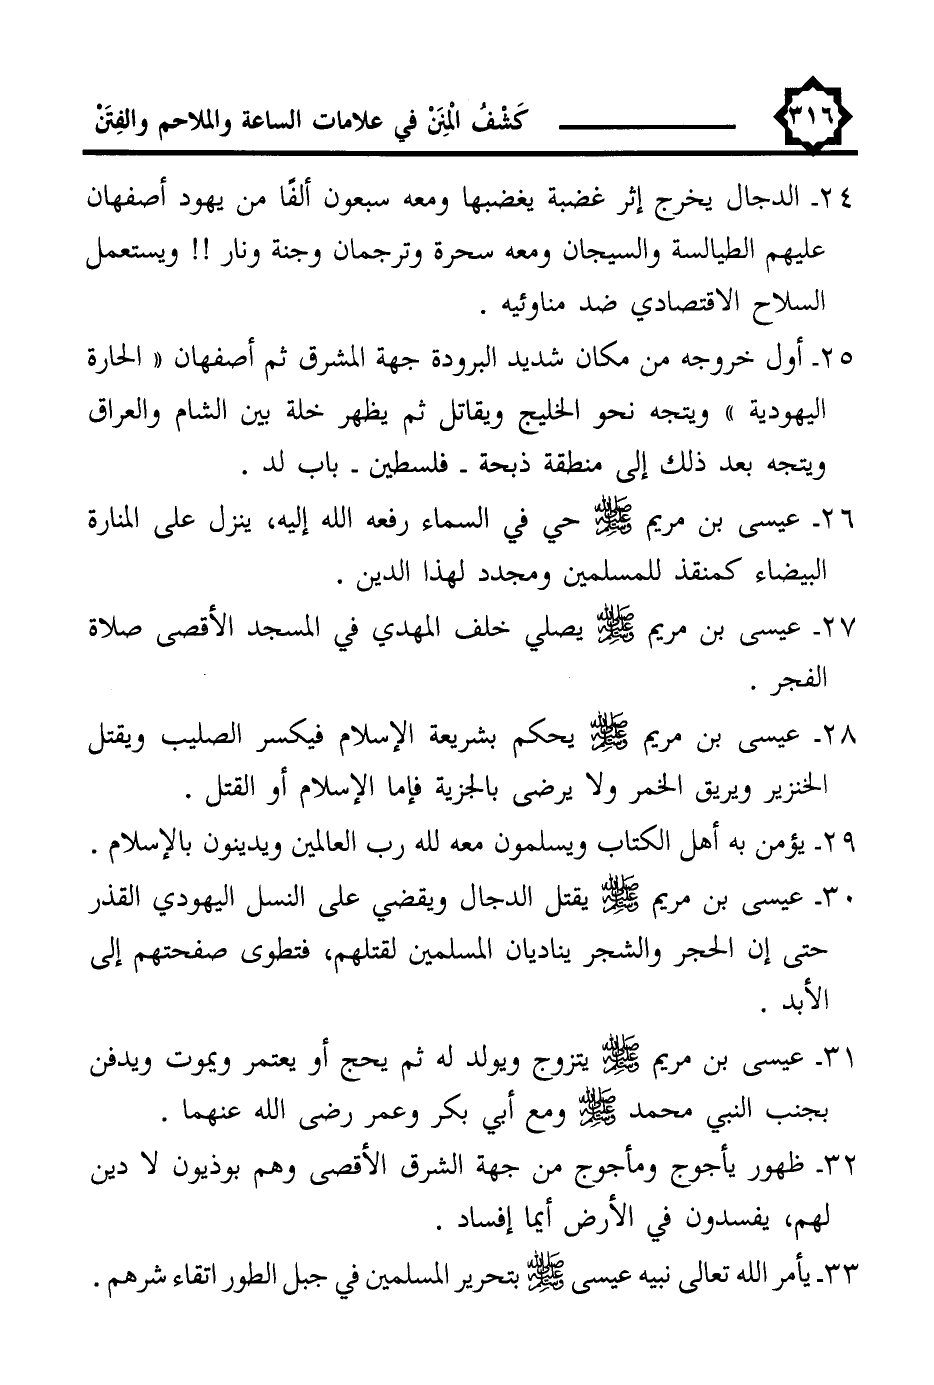 ٣١٦ كَشْفُ الْمِنَنْ في علامات الساعة والملاحم والفِتَنْ
٢٤ـ الدجال يخرج إثر غضبة يغضبها ومعه سبعون ألفًا من يهود أصفهان
عليهم الطيالسة والسيجان ومعه سحرة وترجمان وجنة ونار !! ويستعمل
السلاح الاقتصادي ضد مناوئيه .
٢٥ـ أول خروجه من مكان شديد البرودة جهة المشرق ثم أصفهان « الحارة
اليهودية » ويتجه نحو الخليج ويقاتل ثم يظهر خلة بين الشام والعراق
ويتجه بعد ذلك إلى منطقة ذبحة ـ فلسطين ـ باب لد .
٢٦ـ عيسى بن مريم ﷺ حي في السماء رفعه الله إليه، ينزل على المنارة
البيضاء كمنقذ للمسلمين ومجدد لهذا الدين .
٢٧ـ عيسى بن مريم ﷺ يصلي خلف المهدي في المسجد الأقصى صلاة
الفجر .
٢٨ـ عيسى بن مريم ﷺ يحكم بشريعة الإسلام فيكسر الصليب ويقتل
الخنزير ويريق الخمر ولا يرضى بالجزية فإما الإسلام أو القتل .
٢٩ـ يؤمن به أهل الكتاب ويسلمون معه لله رب العالمين ويدينون بالإسلام .
٣٠ـ عيسى بن مريم ﷺ يقتل الدجال ويقضي على النسل اليهودي القذر
حتى إن الحجر والشجر يناديان المسلمين لقتلهم، فتطوى صفحتهم إلى
الأبد .
٣١ـ عيسى بن مريم ﷺ يتزوج ويولد له ثم يحج أو يعتمر ويموت ويدفن
بجنب النبي محمد ﷺ ومع أبي بكر وعمر رضى الله عنهما .
٣٢ـ ظهور يأجوج ومأجوج من جهة الشرق الأقصى وهم بوذيون لا دين
لهم، يفسدون في الأرض أيما إفساد .
٣٣ـ يأمر الله تعالى نبيه عيسى ﷺ بتحرير المسلمين في جبل الطور اتقاء شرهم .